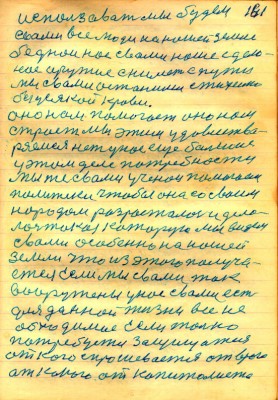 использават мы будем 181
свами все люди на нашей земле
бедной нас свами наше сдела-
ное оружие снимет с пути
мы свами останимся тихими
без всякой крови.
оно нам помогает оно нам
строет мы этим удовлетва-
ряемся нет у нас еще больше
у этом деле потребности
мы те свами ученой помогаем
политики чтобы она со своим
народом разросталас и дела-
лоч такая каторую мы видем
свами особенно на нашей
земли что из этого получа-
ется если мы свами так
вооружены у нас свами ест
для данной жизни все не
обходимое если только
потребуется защищатся
от кого спрошевается от врага
от какого от капиталиста